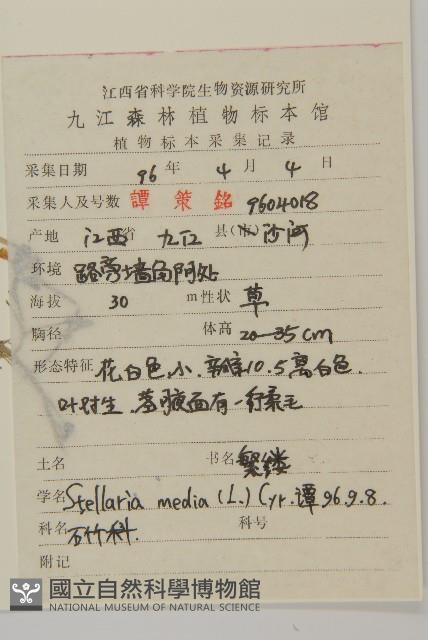 江西省科学院生物资源研究所
九江森林植物标本馆
植物标本采集记录
采集日期 96 年 4 月 4 日
采集人及号数 譚策銘 9604018
产地 江西省 九江 县(市) 沙河
环境 路旁墙角阴处
海拔 30 m 性状 草
胸径 体高 20-35cm
形态特征 花白色,小. 10.5 离白色.
叶对生 茎腋面有一行柔毛
土名 书名 繁缕
学名 Stellaria media (L.) Cyr. 谭 96.9.8.
科名 石竹科. 科号
附记
國立自然科學博物館
NATIONAL MUSEUM OF NATURAL SCIENCE